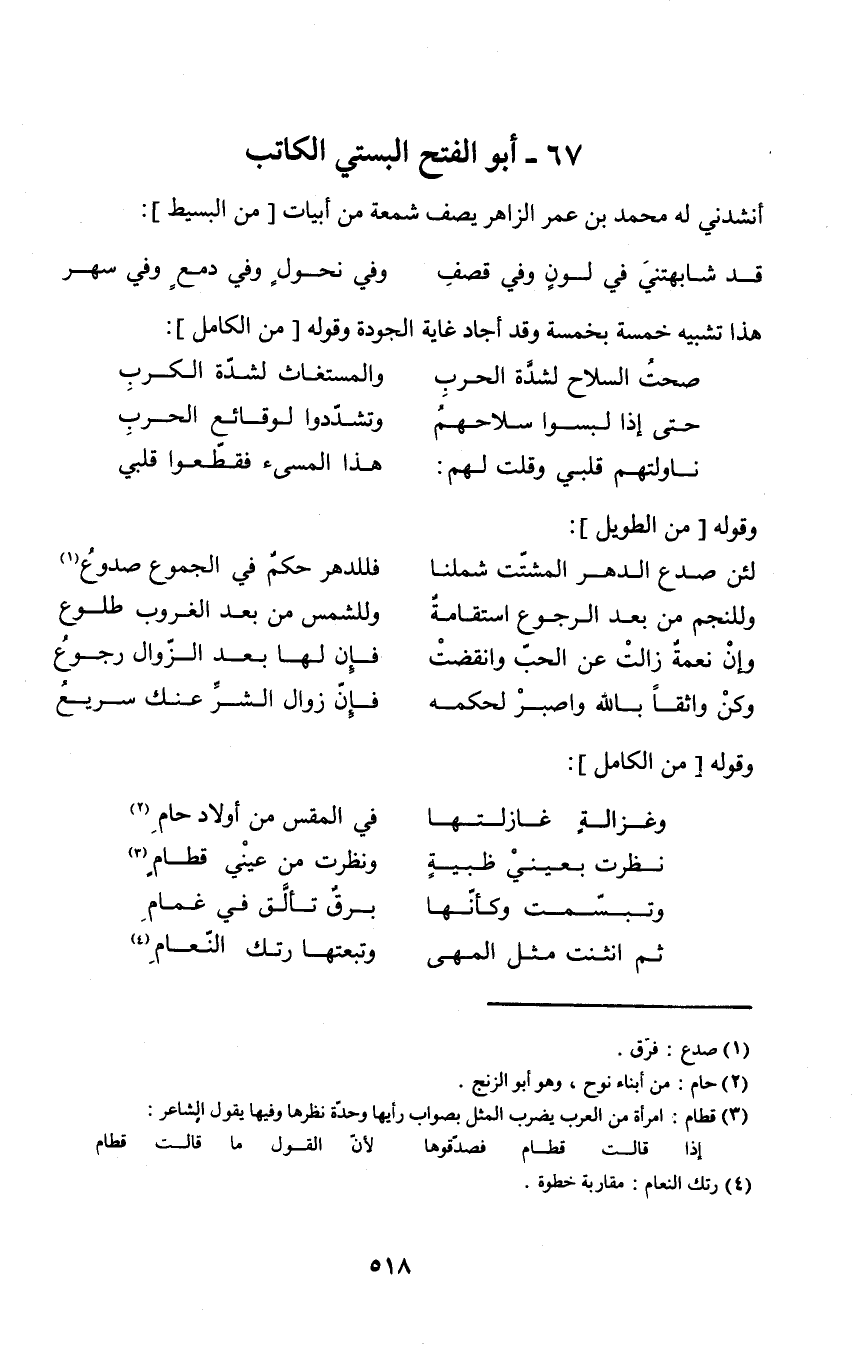 ٦٧ - أبو الفتح البستي الكاتب
أنشدني له محمد بن عمر الزاهر يصف شمعة من أبيات [ من البسيط ]:
قد شابهتنيَ في لونٍ وفي قصفِ وفي نحولٍ وفي دمعٍ وفي سهر
هذا تشبيه خمسة بخمسة وقد أجاد غاية الجودة وقوله [ من الكامل ]:
صحتُ السلاح لشدَّة الحربِ والمستغاث لشدّة الكربِ
حتى إذا لبسوا سلاحهمُ وتشدّدوا لوقائع الحربِ
ناولتهم قلبي وقلت لهم: هذا المسيء فقطّعوا قلبي
وقوله [ من الطويل ]:
لئن صدع الدهر المشتّت شملنا فللدهر حكمٌ في الجموع صدوعُ(١)
وللنجم من بعد الرجوع استقامةٌ وللشمس من بعد الغروب طلوع
وإنْ نعمةٌ زالتْ عن الحبّ وانقضتْ فإن لها بعد الزّوال رجوعُ
وكنْ واثقاً بالله واصبرْ لحكمه فإنّ زوال الشرِّ عنك سريعُ
وقوله [ من الكامل ]:
وغزالةٍ غازلتها في المقس من أولاد حامِ(٢)
نظرت بعينيْ ظبيةٍ ونظرت من عينْي قطامٍ(٣)
وتبسّمت وكأنّها برقٌ تألَّق في غمامِ
ثم انثنت مثل المهى وتبعتها رتك النّعامِ(٤)
(١) صدع : فرّق .
(٢) حام : من أبناء نوح ، وهو أبو الزنج .
(٣) قطام : امرأة من العرب يضرب المثل بصواب رأيها وحدّة نظرها وفيها يقول الشاعر :
إذا قالت قطام فصدّقوها لأنّ القول ما قالت قطام
(٤) رتك النعام : مقاربة خطوة .
٥١٨